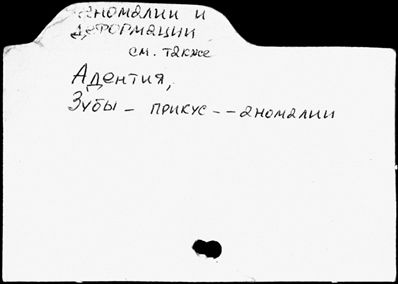 аномалии и
деформации
см. также
Адентия,
Зубы - прикус -- аномалии